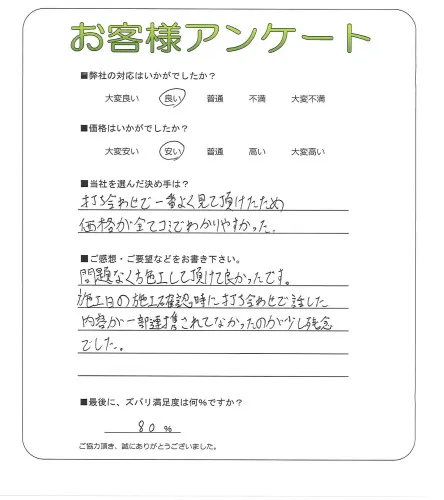 お客様アンケート
■弊社の対応はいかがでしたか?
大変良い 良い 普通 不満 大変不満
■価格はいかがでしたか?
大変安い 安い 普通 高い 大変高い
■当社を選んだ決め手は?
打ち合わせで一番よく見て頂けたため
価格が全てコミでわかりやすかった.
■ご感想・ご要望などをお書き下さい。
問題なく施工して頂けて良かったです。
施工日の施工確認時に打ち合わせで話した
内容が一部連携されてなかったのが少し残念
でした。
■最後に、ズバリ満足度は何%ですか?
80 %
ご協力頂き、誠にありがとうございました。